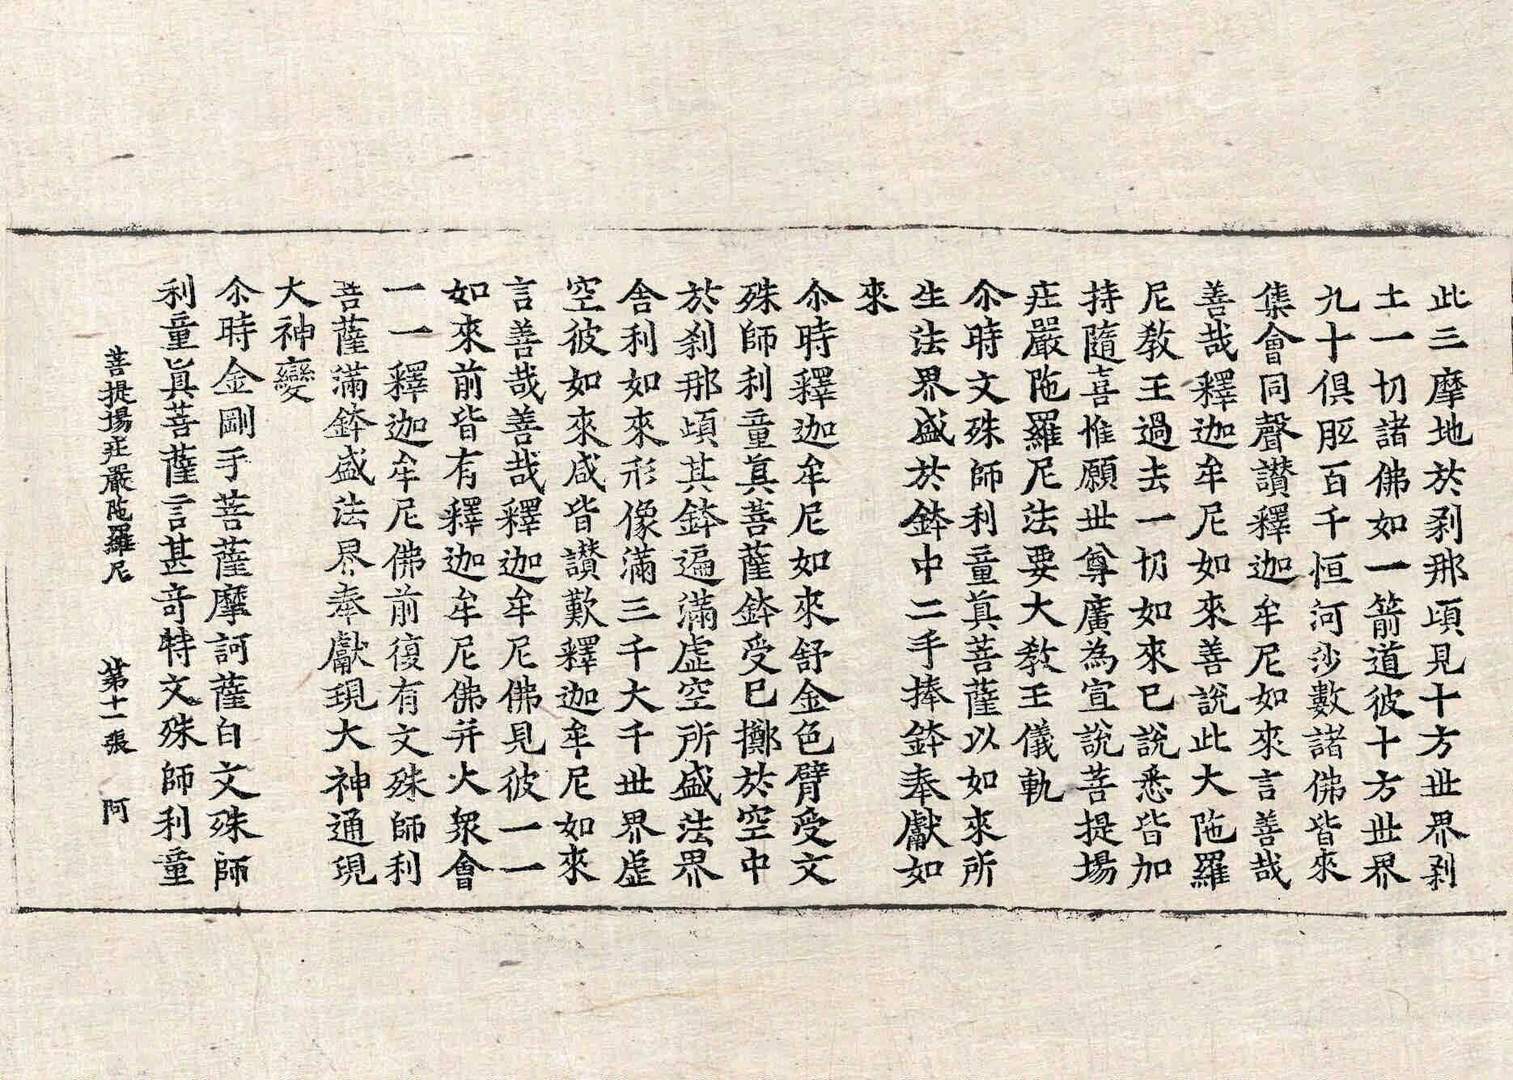 此三摩地於刹那頃見十方世界刹
土一切諸佛如一箭道彼十方世界
九十俱胝百千恒河沙數諸佛皆來
集會同聲讃釋迦牟尼如來言善哉
善哉釋迦牟尼如來善說此大陁羅
尼教王過去一切如來已說悉皆加
持隨喜惟願世尊廣為宣說菩提場
莊嚴陁羅尼法要大教王儀軌
尒時文殊師利童真菩薩以如來所
生法界盛於鉢中二手捧鉢奉獻如
來
尒時釋迦牟尼如來舒金色臂受文
殊師利童真菩薩鉢受已擲於空中
於刹那頃其鉢遍滿虛空所盛法界
舍利如來形像滿三千大千世界虛
空彼如來咸皆讃歎釋迦牟尼如來
言善哉善哉釋迦牟尼佛見彼一一
如來前皆有釋迦牟尼佛并大衆會
一一釋迦牟尼佛前復有文殊師利
菩薩滿鉢盛法界奉獻現大神通現
大神變
尒時金剛手菩薩摩訶薩白文殊師
利童眞菩薩言甚奇特文殊師利童
菩提場莊嚴陁羅尼 第十一張 阿